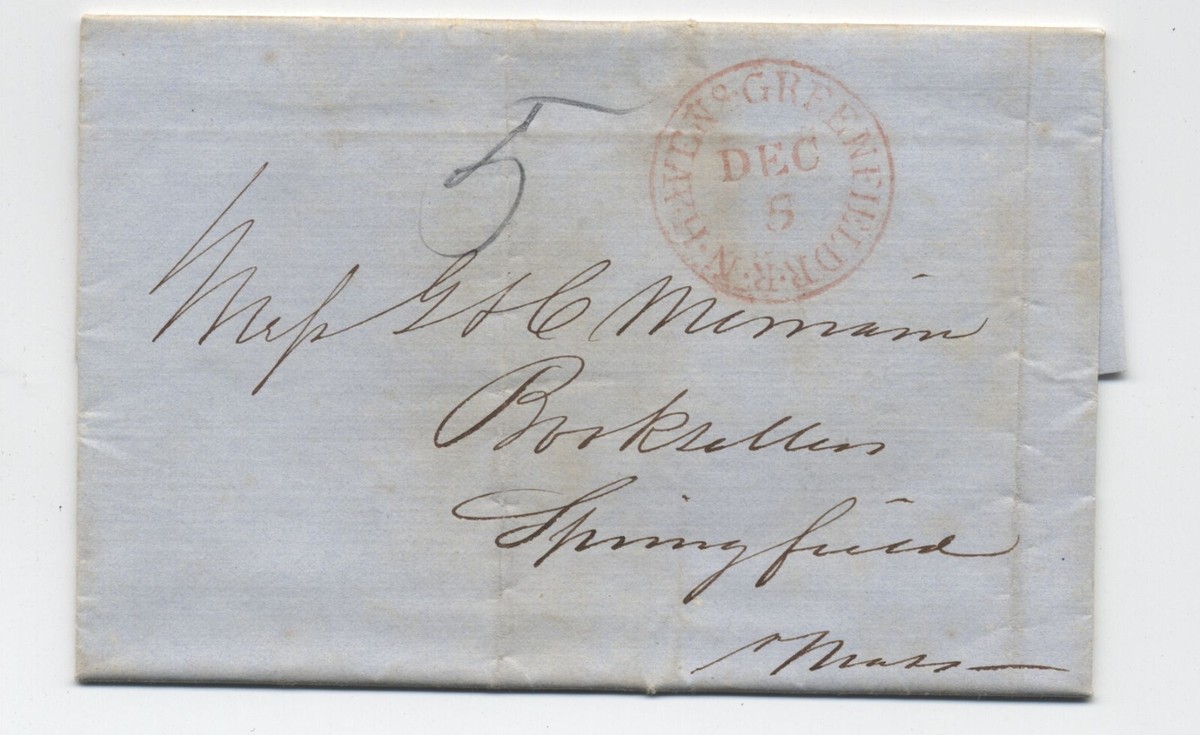 5
N. HAVEN & GREENFIELD R. R.
DEC
8
Mess G & C Merriam
Booksellers
Springfield
Mass